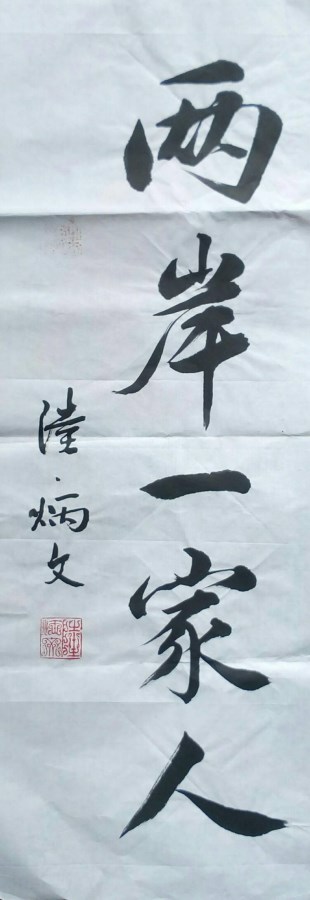 两岸一家人
陸炳文